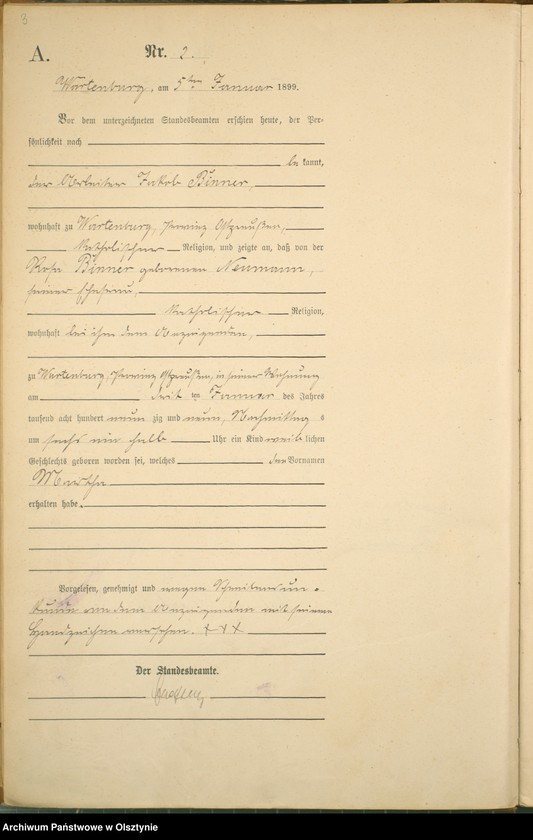 3
A.
Nr. 2.
Wartenburg, am 5ten Januar 1899.
Vor dem unterzeichneten Standesbeamten erschien heute, der Per-
sönlichkeit nach
bekannt,
der Arbeiter Jakob Binner,
wohnhaft zu Wartenburg, Provinz Ostpreußen,
katholischer Religion, und zeigte an, daß von der
Rosa Binner geborenen Neumann,
seiner Ehefrau,
katholischer Religion,
wohnhaft bei ihm dem Anzeigenden,
zu Wartenburg, Provinz Ostpreußen, in seiner Wohnung
am ten Januar des Jahres
tausend acht hundert neunzig und neun, Nachmittags
um sechs ein halb Uhr ein Kind weiblichen
Geschlechts geboren worden sei, welches den Vornamen
Martha
erhalten habe.
Vorgelesen, genehmigt und wegen Schreibensun-
kunde von dem Anzeigenden mit seinem
Handzeichen versehen. +++
Der Standesbeamte.
Archiwum Państwowe w Olsztynie